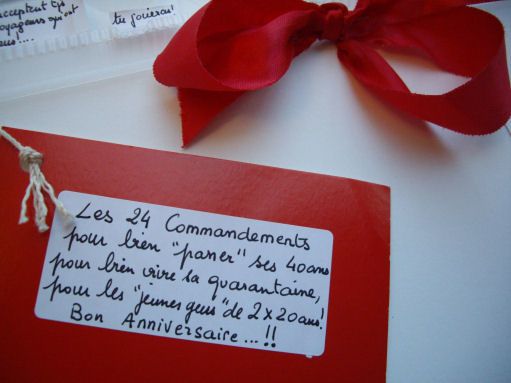 acceptent tes
voyageurs qui ont
tu joueras!
Les 24 Commandements
pour bien "passer" ses 40 ans
pour bien vivre sa quarantaine,
pour les "jeunes gens" de 2 x 20 ans!
Bon Anniversaire...!!